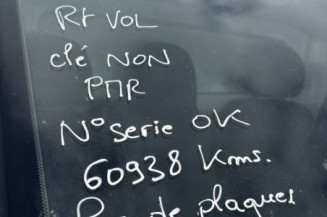 Rt VOL
clé NON
PMR
N° serie OK
60938 Kms.
Pas de plaques